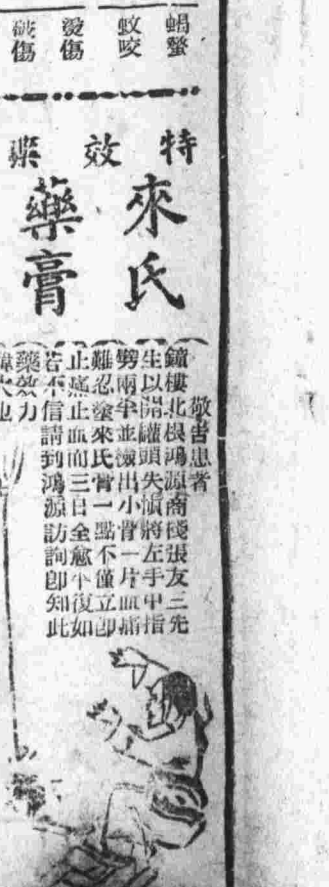 蝎螫
蚊咬
燙傷
破傷
特效藥
來氏
藥膏
敬告患者
鐘樓北根鴻源商棧張友三先
生以開罐頭失慎將左手中指
劈兩半並檢出小骨一片血痛
難忍塗來氏膏一點不僅立卽
止痛止血而三日全愈平復如
若不信請到鴻源訪詢卽知此
藥效力